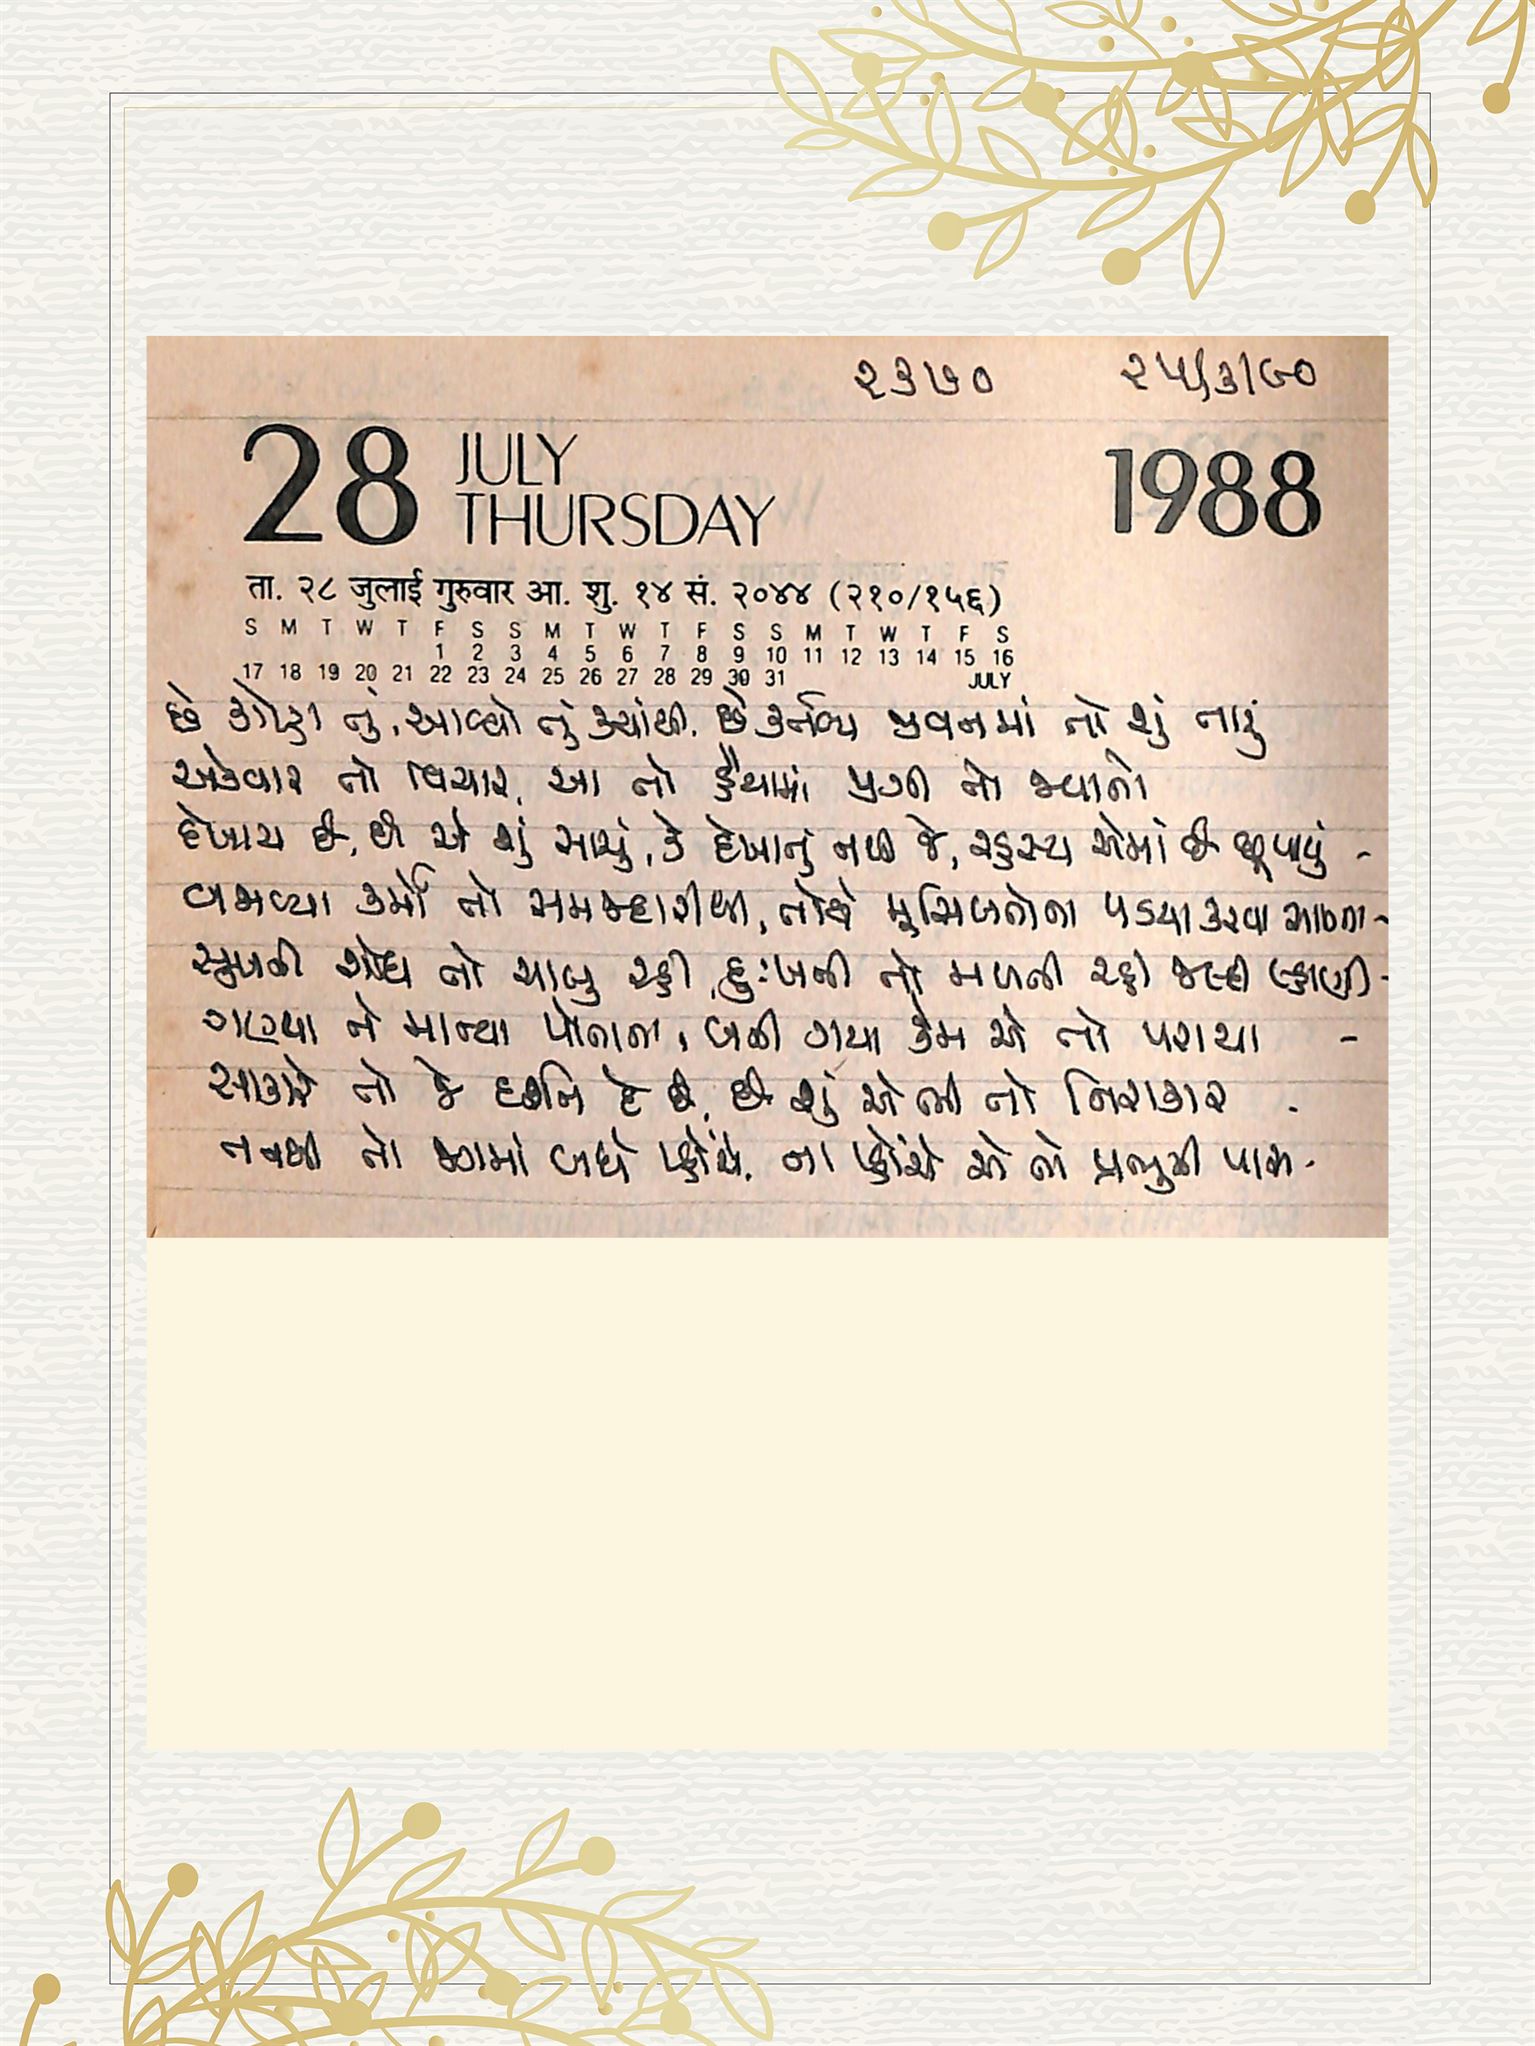 ૨૩૭૦ ૨૫/૩/૯૦
28 JULY THURSDAY 1988
ता. २८ जुलाई गुरुवार आ. शु. १४ सं. २०४४ (२१०/१५६)
S M T W T F S S M T W T F S S M T W T F S
1 2 3 4 5 6 7 8 9 10 11 12 13 14 15 16
17 18 19 20 21 22 23 24 25 26 27 28 29 30 31 JULY
છે કોણ તું, આવ્યો તું ક્યાંથી, છે કર્તવ્ય જીવનમાં તો શું તારું
એકવાર તો વિચાર, આ તો હૈયામાં
દેખાય છે, છે એ શું સાચું, કે દેખાતું નથી જે, રહસ્ય એમાં છે છૂપાયું -
બજાવ્યા કર્મો તો સમજદારીથી, તોયે મુસિબતોના પડયા કરવા સામના -
સુખની શોધ તો ચાલુ રહી, દુઃખની તો મળતી રહી જલ્દી લ્હાણી -
ગણ્યા ને માન્યા પોતાના, બની ગયા કેમ એ તો પરાયા -
સાકાર તો જે દર્શન દે છે, છે શું એ ભી તો નિરાકાર -
નજર તો જગમાં બધે પ્હોંચે, ના પ્હોંચે એ તો પ્રભુની પાસ -